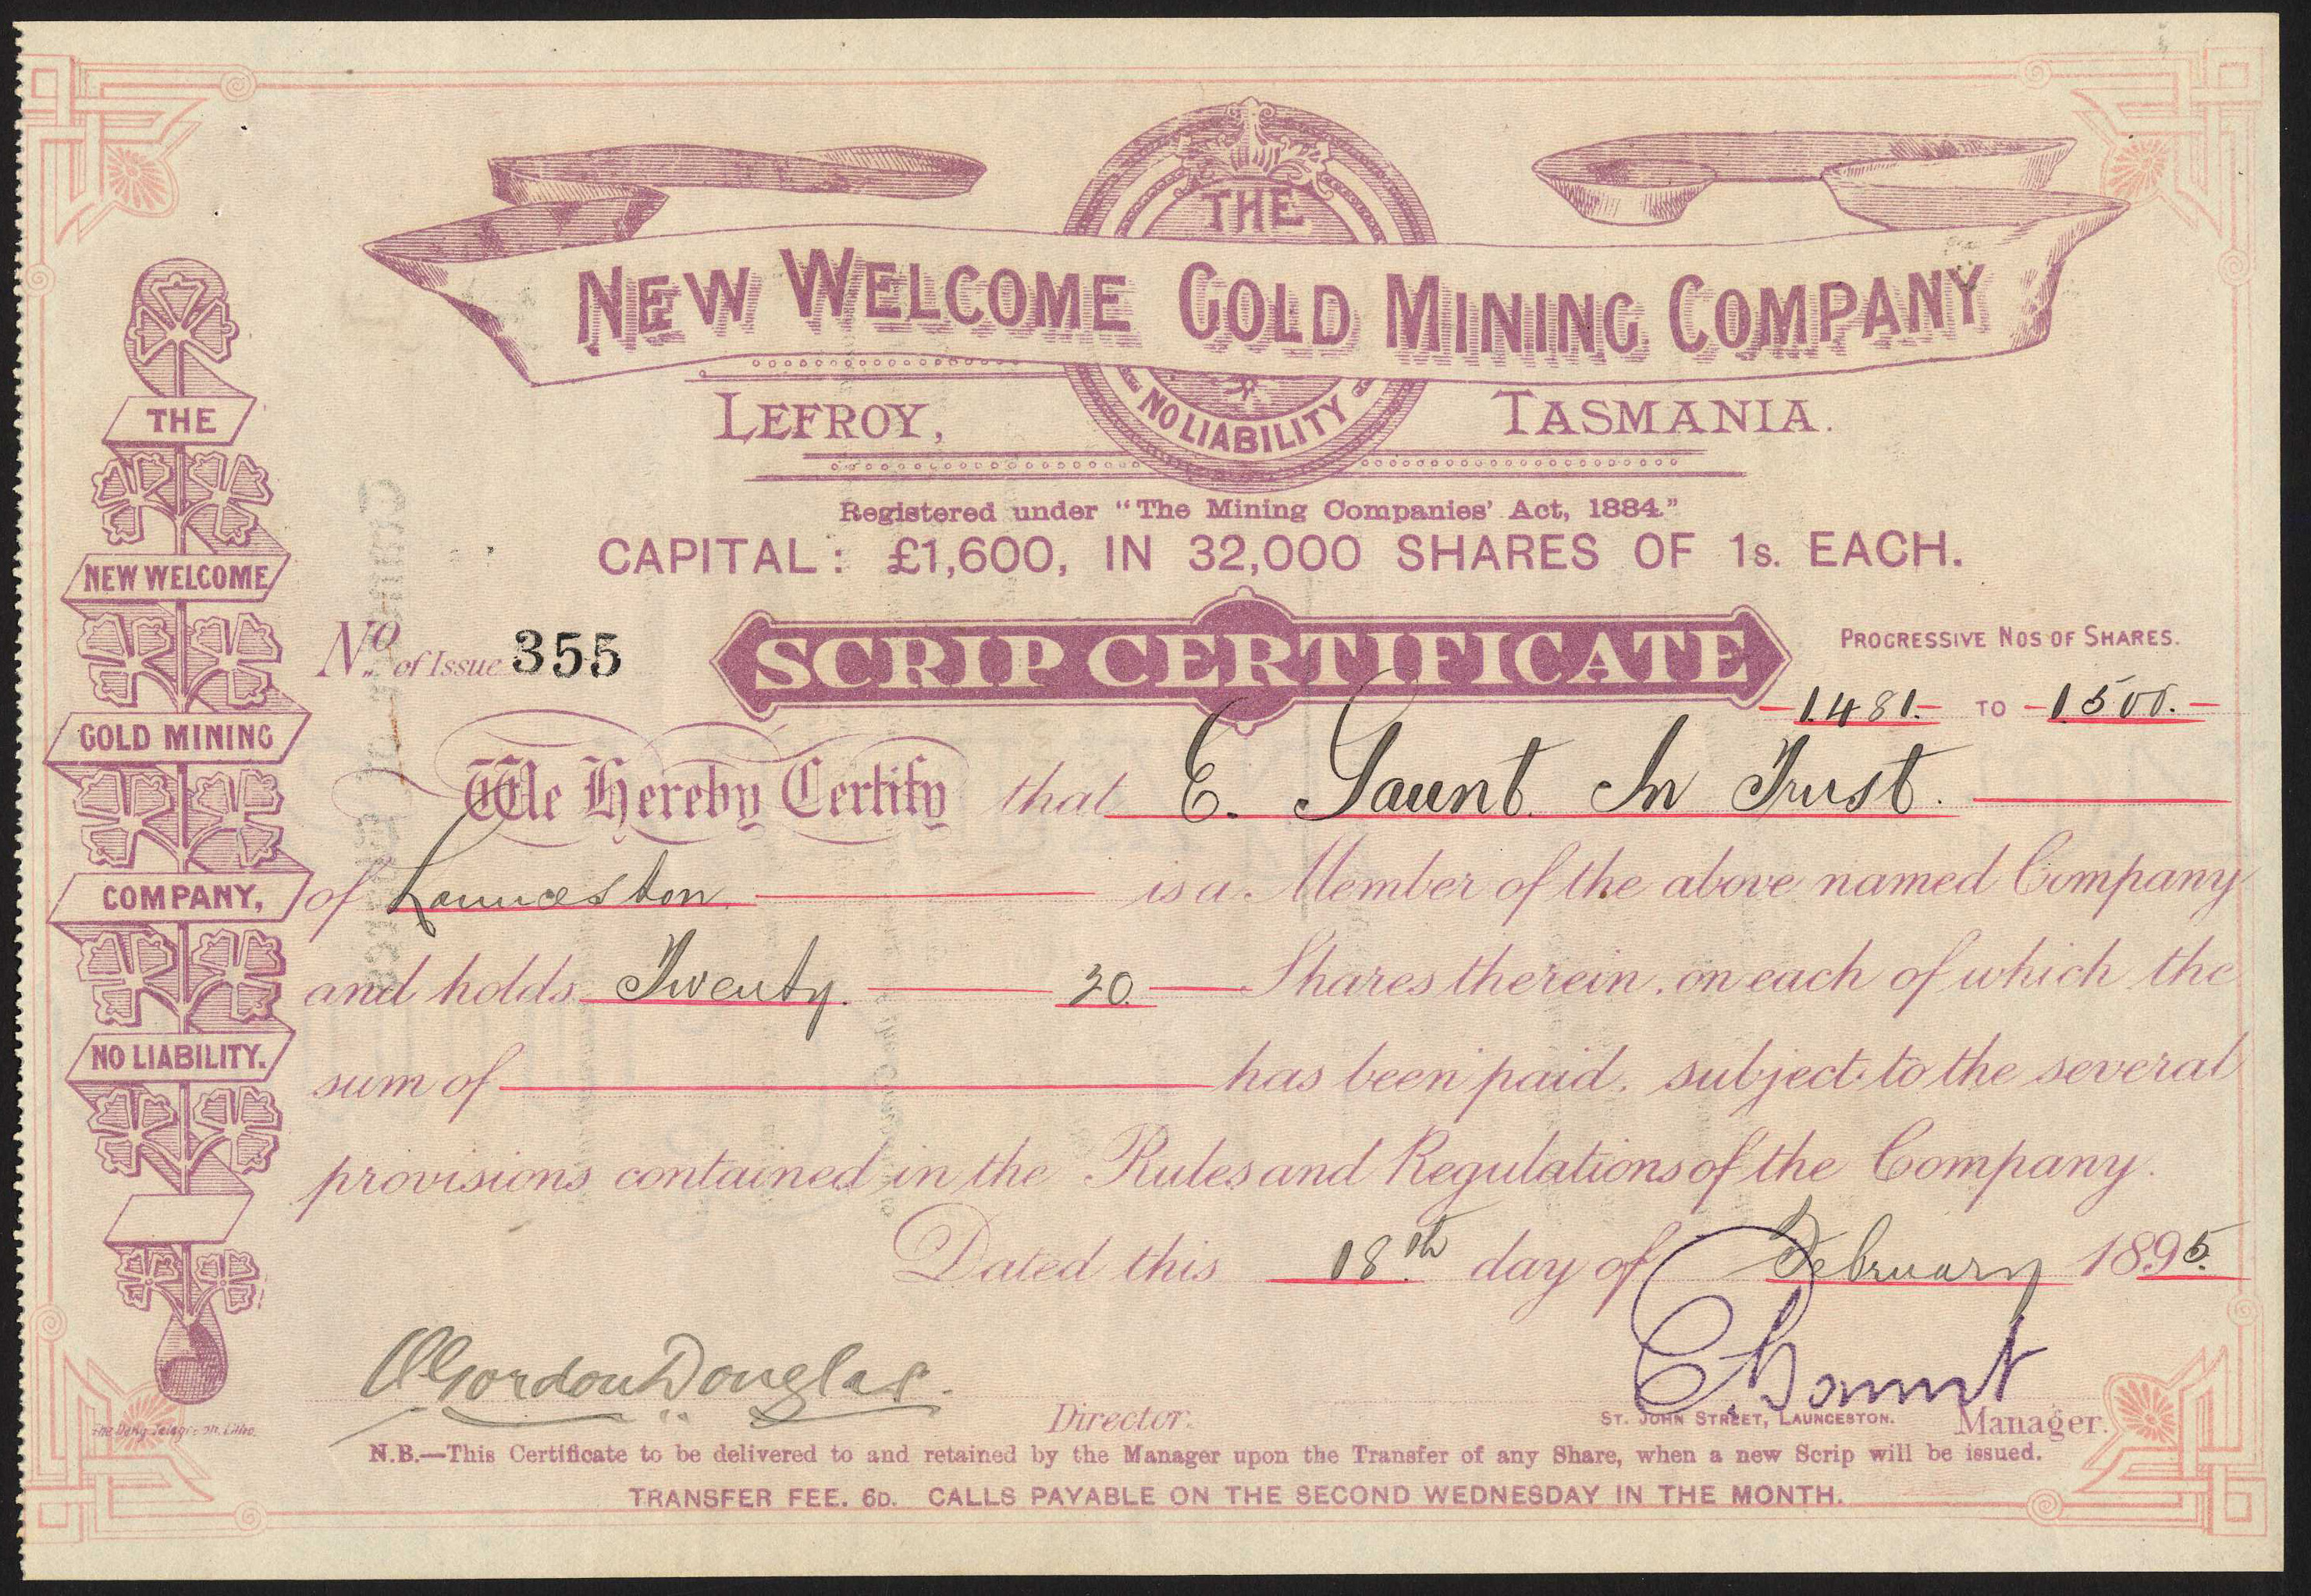 THE
NEW WELCOME GOLD MINING COMPANY
NO LIABILITY
LEFROY, TASMANIA.
Registered under "The Mining Companies' Act, 1884."
CAPITAL: £1,600, IN 32,000 SHARES OF 1s. EACH.
No. of Issue 355
SCRIP CERTIFICATE
PROGRESSIVE NOS OF SHARES.
1481 TO 1500.
We Hereby Certify that E. Gaunt In Trust.
of Launceston is a Member of the above named Company
and holds Twenty 20 Shares therein, on each of which the
sum of has been paid, subject to the several
provisions contained in the Rules and Regulations of the Company.
Dated this 18th day of February 1895
Gordon Douglas. Director.
E Gaunt
ST. JOHN STREET, LAUNCESTON. Manager.
N.B.—This Certificate to be delivered to and retained by the Manager upon the Transfer of any Share, when a new Scrip will be issued.
TRANSFER FEE. 6D. CALLS PAYABLE ON THE SECOND WEDNESDAY IN THE MONTH.
THE
NEW WELCOME
GOLD MINING
COMPANY,
NO LIABILITY.
The Daily Telegraph Litho.